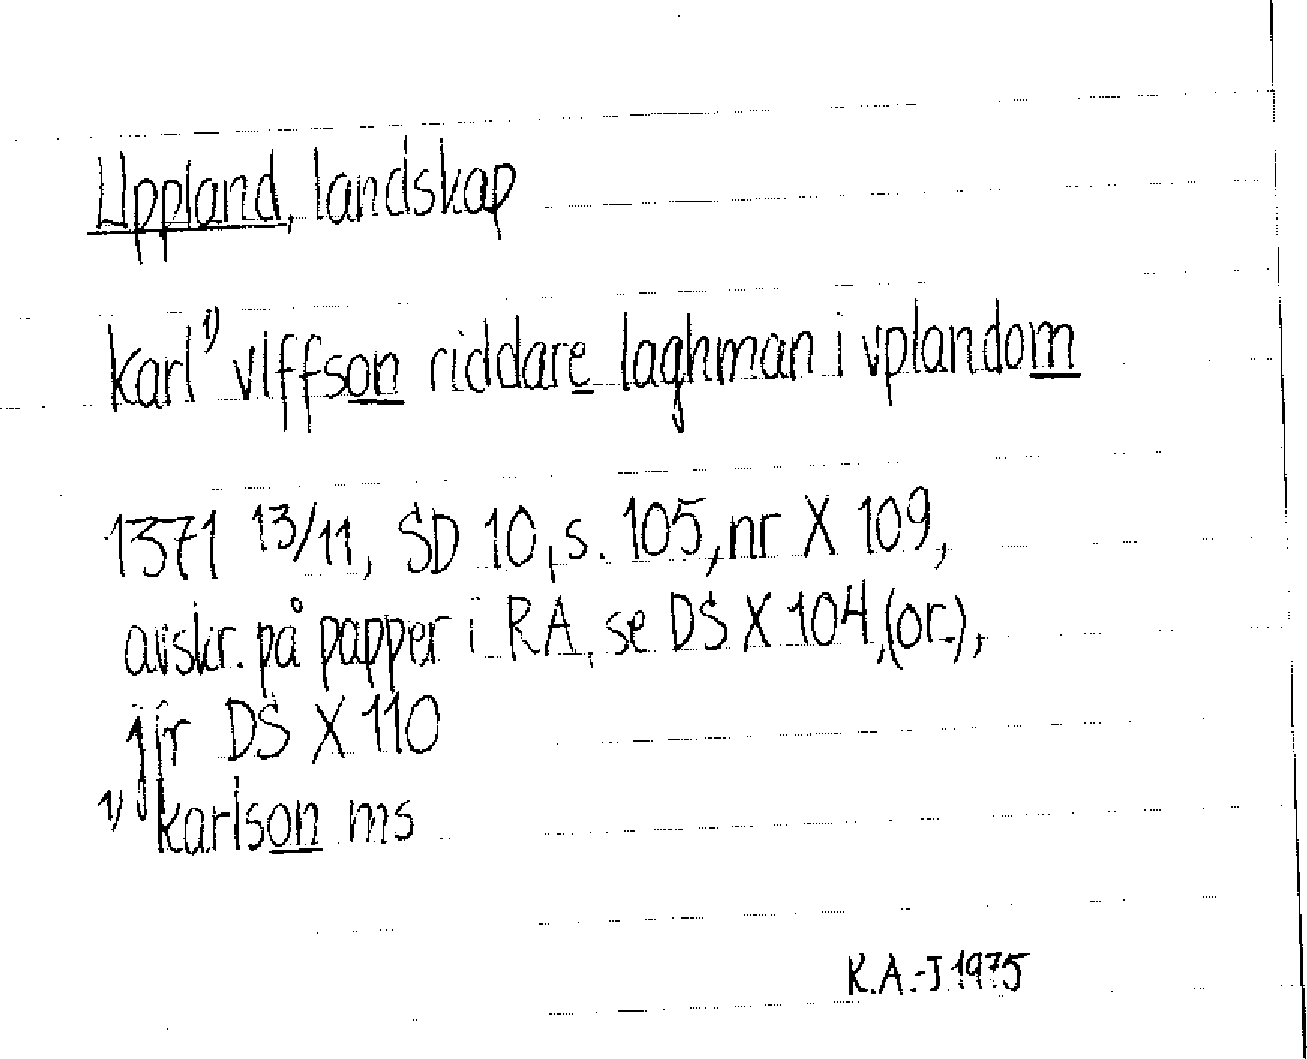 Uppland, landskap
karl 1) vlffson riddare laghman i vplandom
1371 13/11, SD 10, s. 105, nr X 109,
avskr. på papper i RA, se DS X 104, (or.),
jfr DS X 110
1) karlson ms
K.A.-J 1975